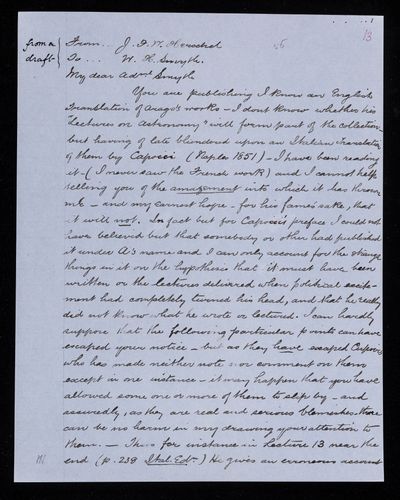 13
from a
draft
From .. J. F. W. Herschel
To ... W. H. Smyth.
My dear Adml Smyth
You are publishing I know an English
Translation of Arago's works – I dont know whether his
"Lectures on Astronomy" will form part of the collection
but having of late blundered upon an Italian Translation
of them by Capocci (Naples 1851) – I have been reading
it – (I never saw the French work) and I cannot help
telling you of the amazement into which it has thrown
me – and my earnest hope – for his fame's sake, that
it will not. In fact but for Capocci's preface I could not
have believed but that somebody or other had published
it under A's name and I can only account for the strange
things in it on the hypothesis that it must have been
written or the lectures delivered when political excite-
ment had completely turned his head, and that he really
did not know what he wrote or lectured. I can hardly
suppose that the following particular points can have
escaped your notice – but as they have escaped Capocci
who has made neither note nor comment on them
except in one instance – it may happen that you have
allowed some one or more of them to slip by – and
assuredly, as they are real and serious blemishes there
can be no harm in my drawing your attention to
them. – Thus for instance in Lecture 13 near the
end (p. 239 Ital. Edn.) He gives an erroneous account